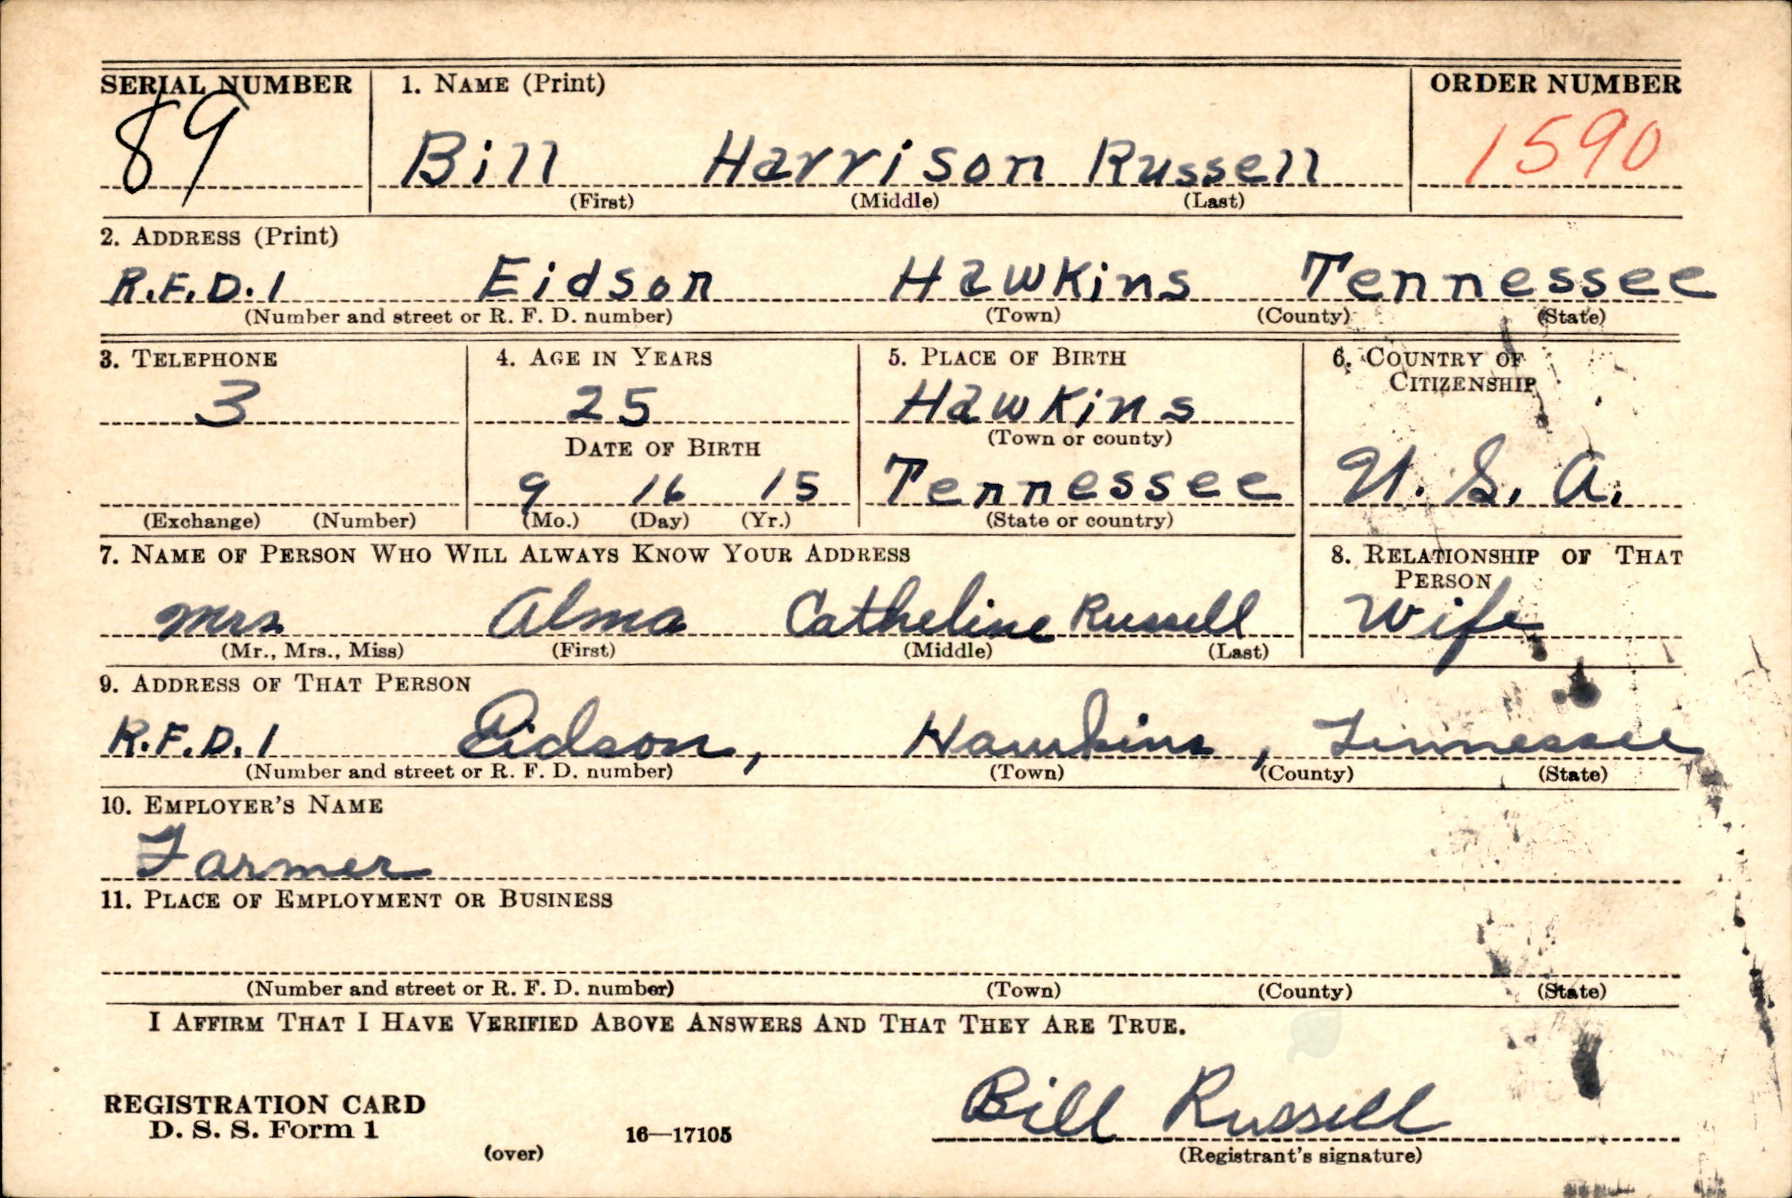 SERIAL NUMBER 1. NAME (Print) ORDER NUMBER
89 Bill Harrison Russell 1590
(First) (Middle) (Last)
2. ADDRESS (Print)
R.F.D. 1 Eidson Hawkins Tennessee
(Number and street or R. F. D. number) (Town) (County) (State)
3. TELEPHONE 4. AGE IN YEARS 5. PLACE OF BIRTH 6. COUNTRY OF
CITIZENSHIP
3 25 Hawkins
(Town or county)
DATE OF BIRTH
9 16 15 Tennessee U. S. A.
(Exchange) (Number) (Mo.) (Day) (Yr.) (State or country)
7. NAME OF PERSON WHO WILL ALWAYS KNOW YOUR ADDRESS 8. RELATIONSHIP OF THAT
PERSON
Mrs Alma Catheline Russell Wife
(Mr., Mrs., Miss) (First) (Middle) (Last)
9. ADDRESS OF THAT PERSON
R.F.D. 1 Eidson, Hawkins, Tennessee
(Number and street or R. F. D. number) (Town) (County) (State)
10. EMPLOYER'S NAME
Farmer
11. PLACE OF EMPLOYMENT OR BUSINESS
(Number and street or R. F. D. number) (Town) (County) (State)
I AFFIRM THAT I HAVE VERIFIED ABOVE ANSWERS AND THAT THEY ARE TRUE.
Bill Russell
REGISTRATION CARD
D. S. S. Form 1 16—17105
(over) (Registrant's signature)